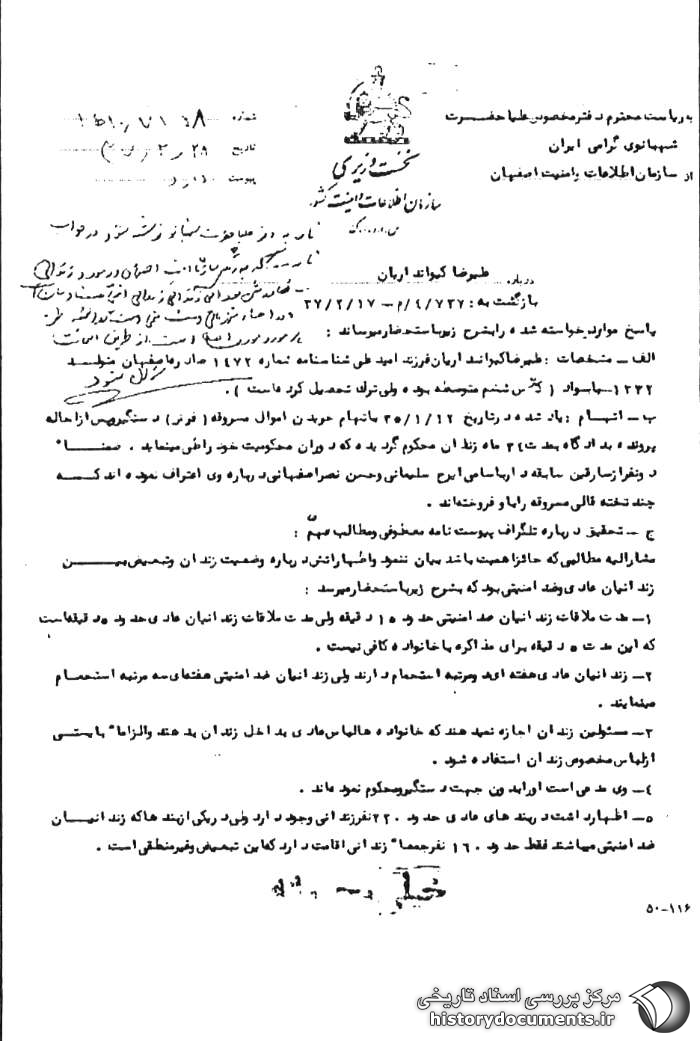 به ریاست محترم دفتر مخصوص علیا حضرت
شهبانوی گرامی ایران
از سازمان اطلاعات و امنیت اصفهان
نخست وزیری
سازمان اطلاعات و امنیت کشور
س.ا.و.ا.ک
شماره
تاریخ
پیوست
درباره علیرضا کیوانداریان
بازگشت به : ۴/۷۲۷/م - ۳۷/۲/۱۷
پاسخ موارد خواسته شده را بشرح زیر باستحضار میرساند :
الف - مشخصات : علیرضا کیوانداریان فرزند امید علی شناسنامه شماره ۱۴۷۲ صادره اصفهان متولد
۱۳۳۲ - باسواد ( کلاس ششم متوسطه بوده ولی ترک تحصیل کرده است ) .
ب - اتهام : یاد شده در تاریخ ۳۵/۱/۱۲ باتهام خریدن اموال مسروقه ( فرش ) دستگیر و پس از احاله
پرونده بدادگاه بمدت ۳۴ ماه زندان محکوم گردیده که دوران محکومیت خود را طی مینماید . ضمناً
دو نفر از سارقین سابقه دار باسامی ایرج سلیمانی و حسن نصر اصفهانی درباره وی اعتراف نموده اند که
چند تخته قالی مسروقه را با و فروخته‌اند .
ج - تحقیق درباره تلگراف پیوست نامه معطوفی و مطالب مهم :
مشارالیه مطالبی که حائز اهمیت باشد بیان ننمود و اظهاراتش درباره وضعیت زندان و تبعیض بین
زندانیان عادی و ضد امنیتی بود که بشرح زیر باستحضار میرسد :
۱ - مدت ملاقات زندانیان ضد امنیتی حدود ۱۵ دقیقه ولی مدت ملاقات زندانیان عادی حدود ۵ دقیقه است
که این مدت ۵ دقیقه برای مذاکره با خانواده کافی نیست .
۲ - زندانیان عادی هفته ای دو مرتبه استحمام دارند ولی زندانیان ضد امنیتی هفته‌ای سه مرتبه استحمام
مینمایند .
۳ - مسئولین زندان اجازه نمیدهند که خانواده ها لباس عادی بداخل زندان بدهند و الزاماً بایستی
از لباس مخصوص زندان استفاده شود .
۴ - وی مدعی است او را بدون جهت دستگیر و محکوم نموده‌اند .
۵ - اظهار داشت در بندهای عادی حدود ۲۲۰ نفر زندانی وجود دارد ولی در یکی از بندها که زندانیان
ضد امنیتی میباشند فقط حدود ۱۶۰ نفر جمعاً زندانی اقامت دارد که این تبعیض و غیر منطقی است .
۵۰-۱۱۶
مرکز بررسی اسناد تاریخی
historydocuments.ir